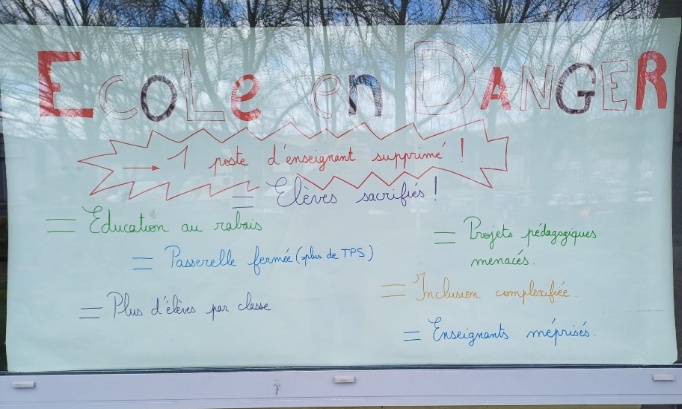 Ecole en DANGER
→ 1 poste d'enseignant supprimé !
= Elèves sacrifiés !
= Education au rabais
= Projets pédagogiques
menacés.
= Passerelle fermée (plus de TPS)
= Inclusion complexifiée.
= Plus d'élèves par classe
= Enseignants méprisés.